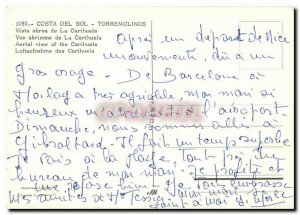 1090.- COSTA DEL SOL - TORREMOLINOS
Vista aérea de La Carihuela
Vue aérienne de La Carihuela
Aerial view of the Carihuela
Luftaufnahme des Carihuela
Après un départ de Nice
mouvementé, dû à un
gros orage. De Barcelone à
Malaga très agréable, mon mari si
heureux m'attendait à l'aéroport
Dimanche, nous sommes allés à
Gibraltard. Il fait un temps superbe
Je vais à la plage, tout près du
bureau de mon mari. J'en profite et
me repose bien. Je vous embrasse
mes amitiés à Mr Tessier mon mari